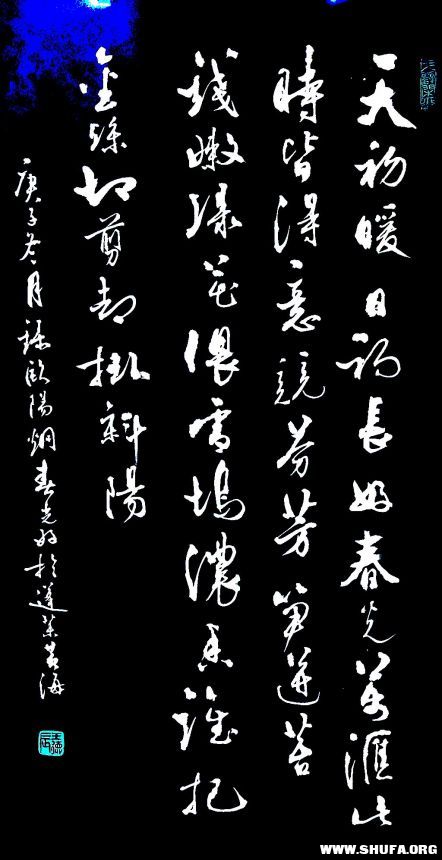 天初暖日初長好春光萬滙此
時皆得意競芬芳筍迸苔
錢嫩綠花偎雪塢濃香誰把
金絲切剪却掛斜陽
庚子冬月錄歐陽炯春光好於蓬萊海
WWW.SHUFA.ORG